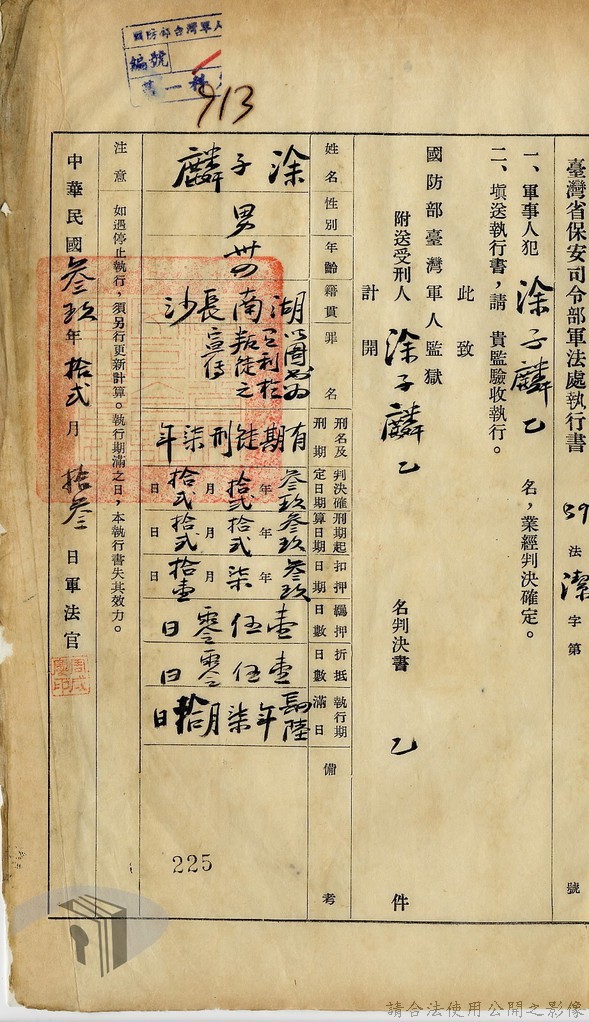 國防部台灣軍人
編號
第一科
913
臺灣省保安司令部軍法處執行書 39 法 潔 字第 號
一、軍事人犯 涂子麟 乙 名，業經判決確定。
二、填送執行書，請 貴監驗收執行。
此致
國防部臺灣軍人監獄
附送受刑人 涂子麟 乙 名判決書 乙 件
計開
姓名 涂子麟
性別 男
年齡 卅四
籍貫 湖南長沙
罪名 以圖書為有利於叛徒之宣傳
刑名及刑期 有期徒刑柒年
判決確定日期 叁玖年拾弍月拾弍日
刑期起算日期 叁玖年拾弍月拾弍日
扣押日期 叁玖年柒月拾壹日
羈押日數 壹伍零日
折抵日數 壹伍零日
執行期滿日 肆陸年柒月拾日
備考
225
注意 如遇停止執行，須另行更新計算。執行期滿之日，本執行書失其效力。
中華民國叁玖年拾弍月拾叁日軍法官
周咸慶印
請合法使用公開之影像